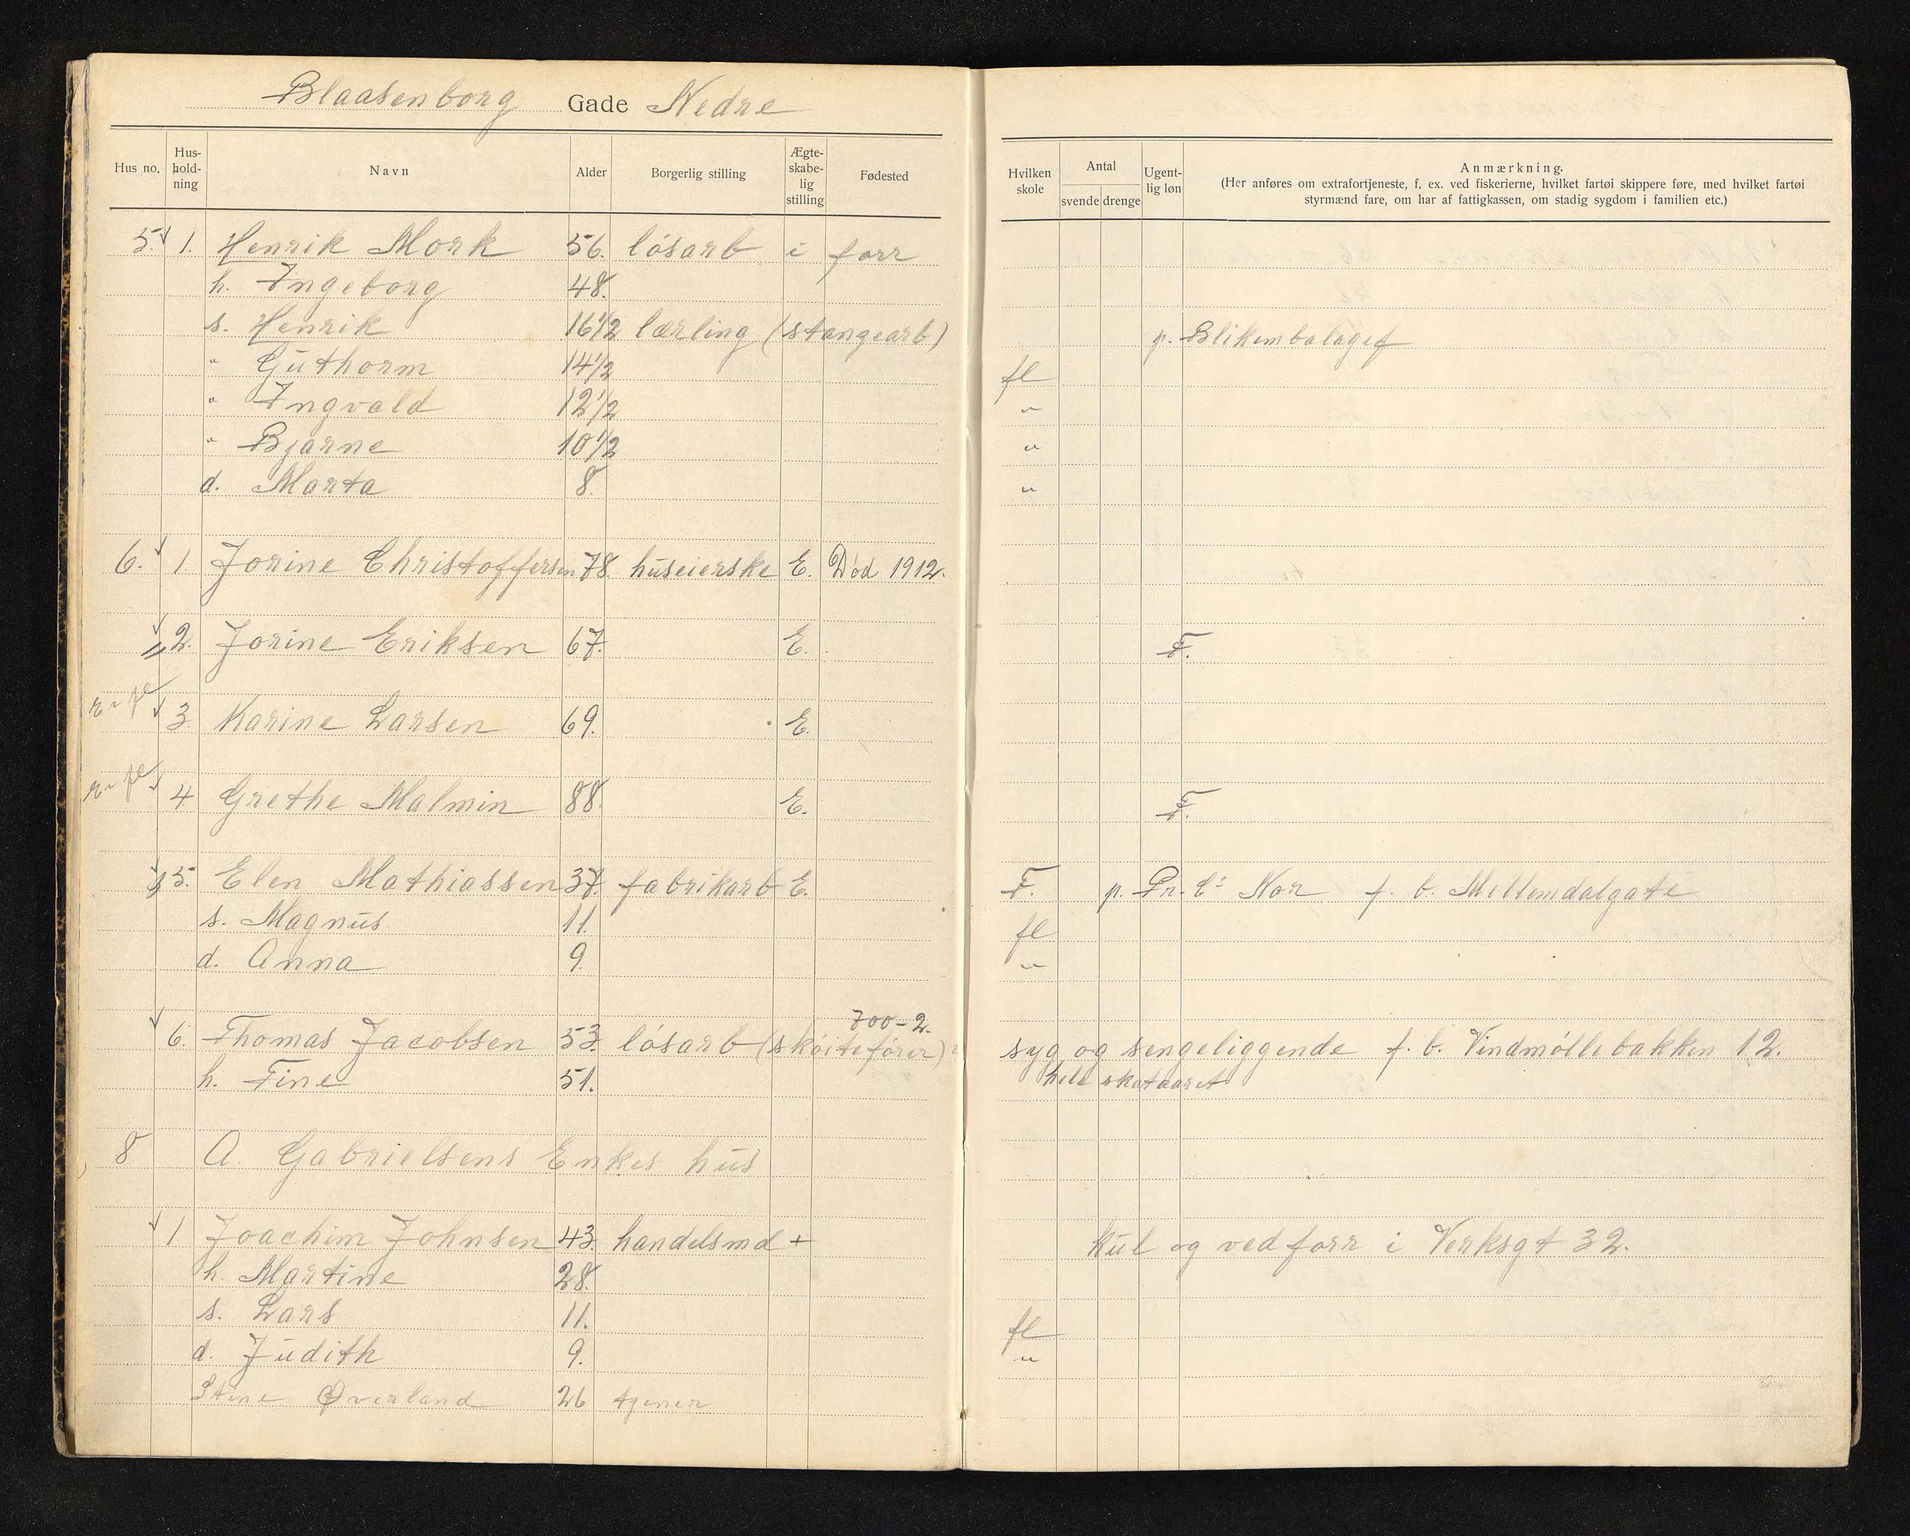 Blaasenborg Gade Nedre
Hus no. Hus-hold-ning Navn Alder Borgerlig stilling Ægte-skabe-lig stilling Fødested
5. 1. Henrik Mork 56. løsarb i forr
h. Ingeborg 48.
s. Henrik 16 1/2 lærling (stangearb)
" Guthorm 14 1/2
" Ingvald 12 1/2
" Bjarne 10 1/2
d. Marta 8.
6. 1. Jorine Christoffersen 78. huseierske E. Død 1912.
2. Jorine Eriksen 67. E.
3. Karine Larsen 69. E.
4 Grethe Malmin 88. E.
5. Elen Mathiassen 37. fabrikarb E.
s. Magnus 11.
d. Anna 9.
700-2.
6. Thomas Jacobsen 53. løsarb (skøitefører)
h. Tine 51.
8 A. Gabrielsens Enkes hus
1 Joachim Johnsen 43. handelsmd +
h. Martine 28.
s. Lars 11.
d. Judith 9.
Stine Øverland 26 tjener
Hvilken skole Antal svende drenge Ugent-lig løn Anmærkning.
(Her anføres om extrafortjeneste, f. ex. ved fiskerierne, hvilket fartøi skippere føre, med hvilket fartøi
styrmænd fare, om har af fattigkassen, om stadig sygdom i familien etc.)
p. Blikembalagef
fl
"
"
"
F.
F.
F. p. Pr. C: Nor f. b. Mellemdalgate
fl
"
syg og sengeliggende f. b. Vindmøllebakken 12.
hele skataaret
Kul og ved forr i Verksgt 32.
fl
"